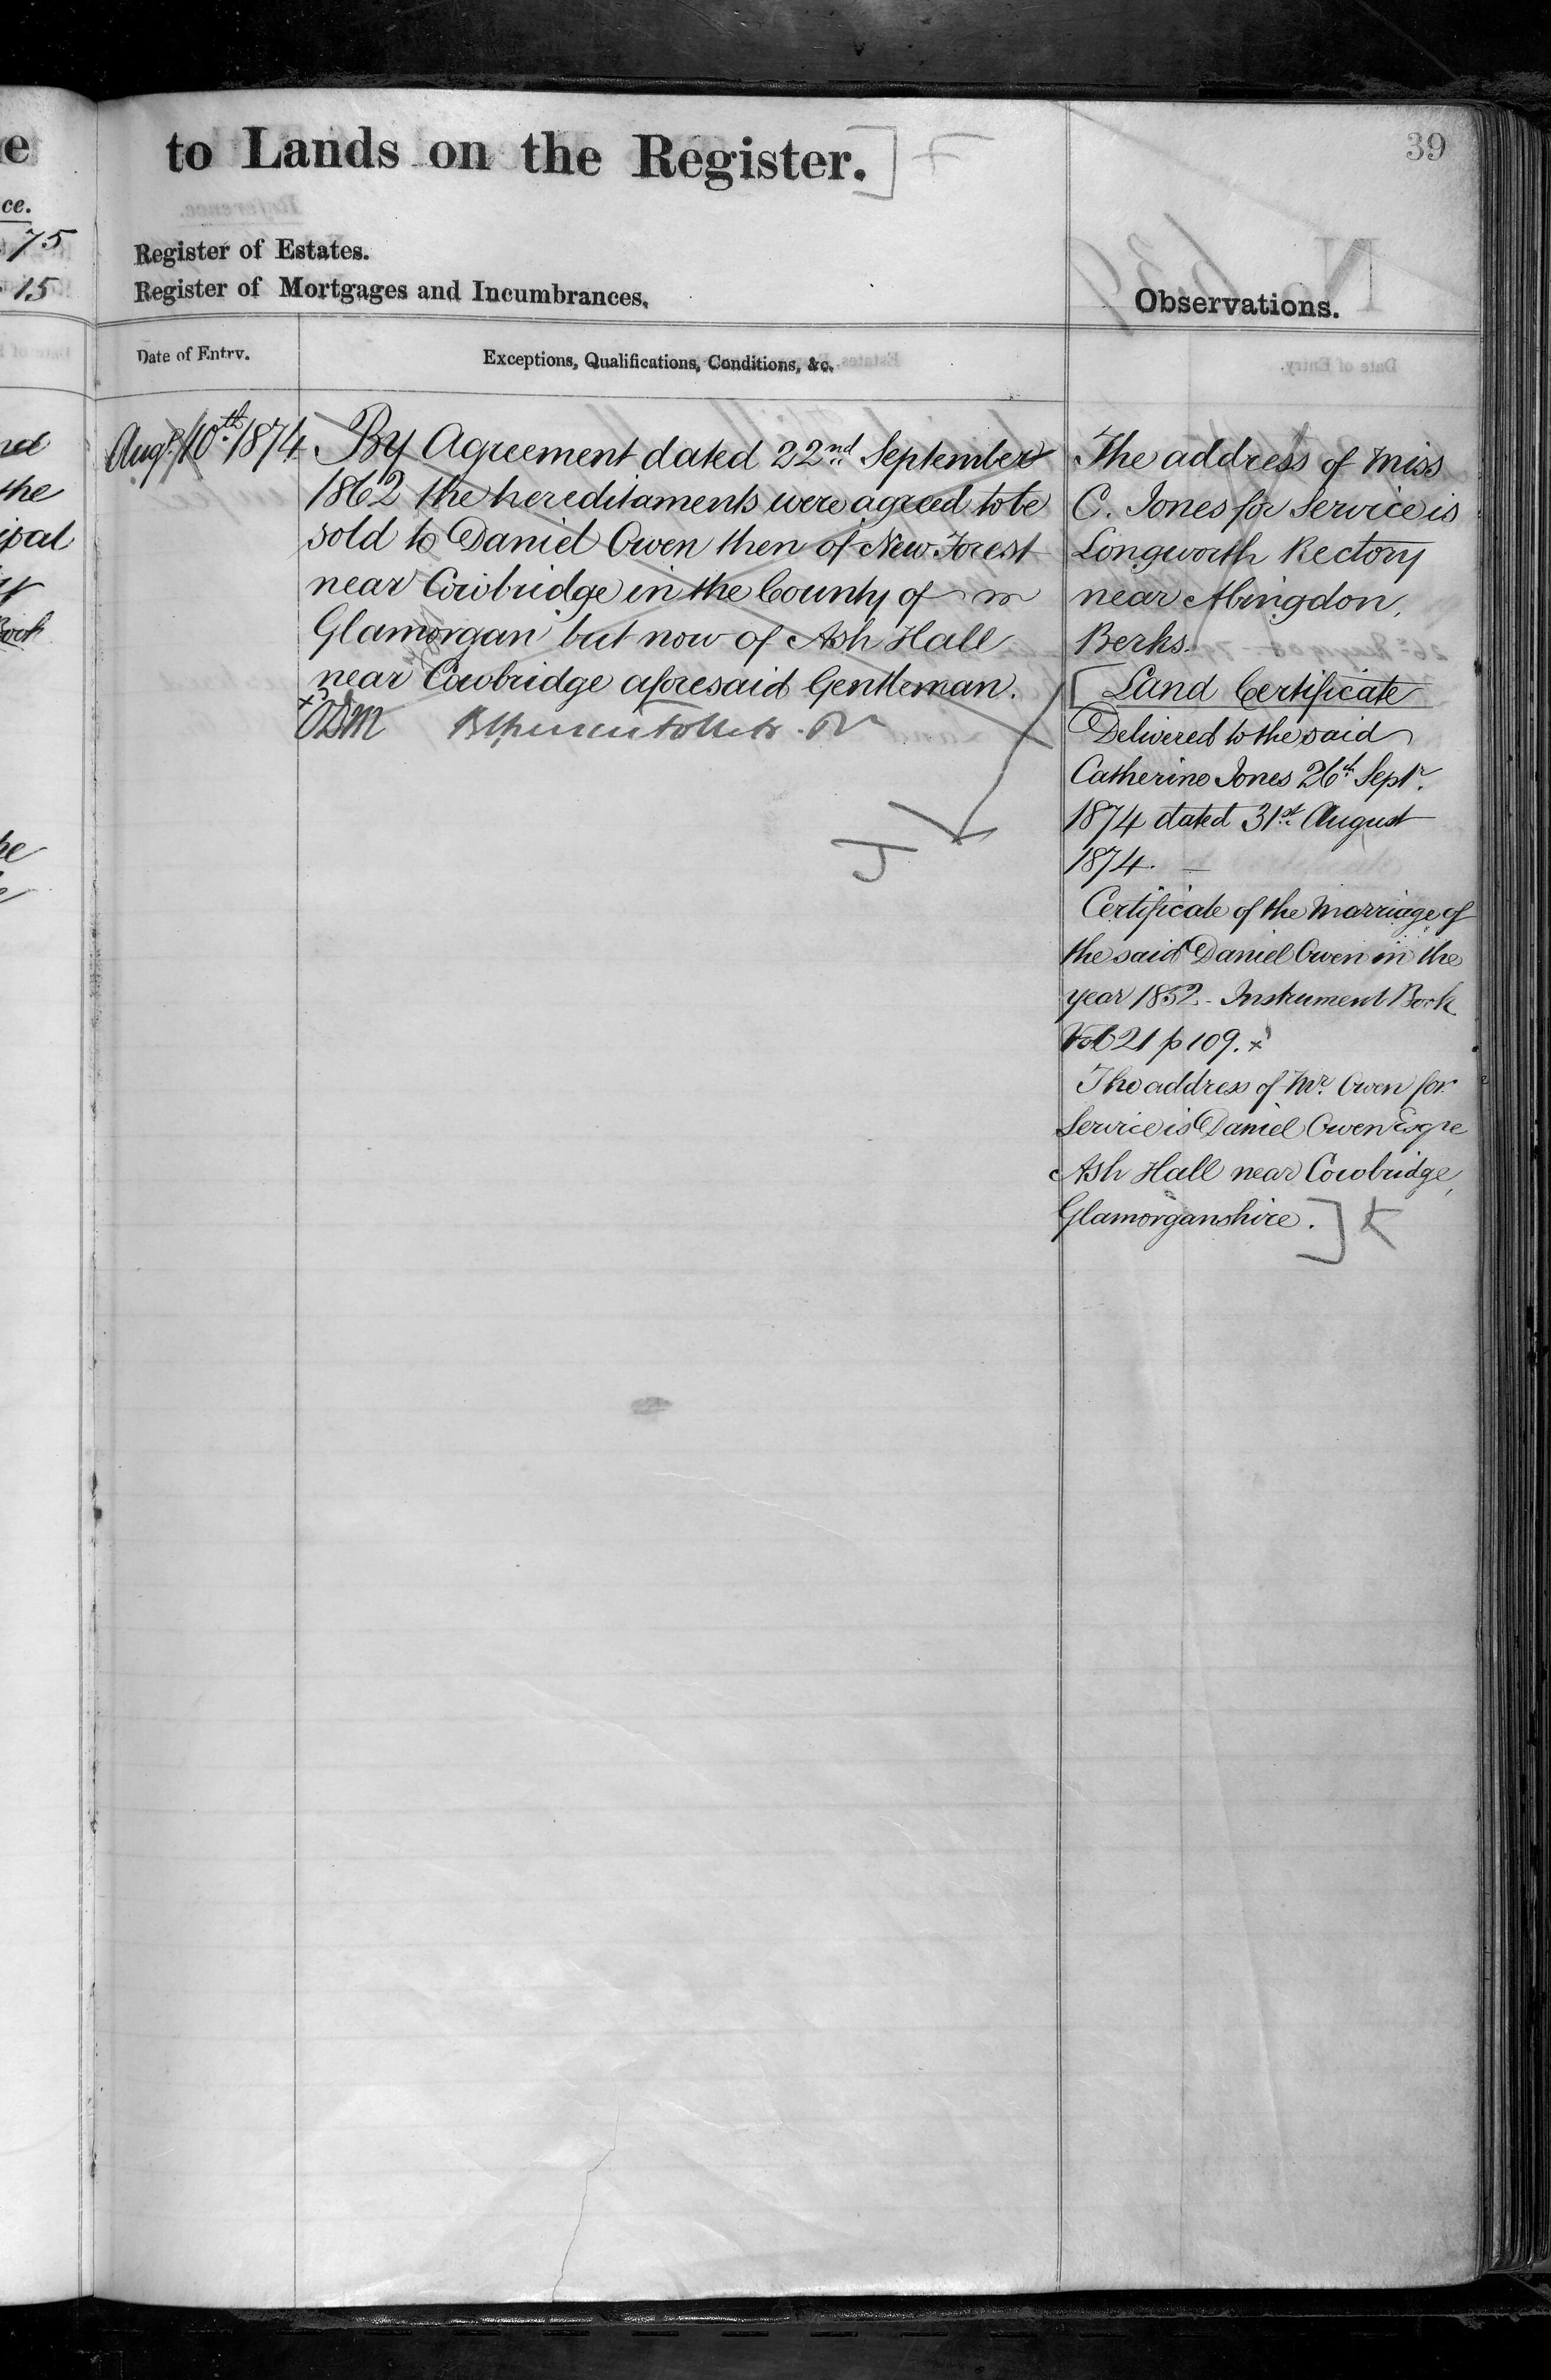 e
ce.
75
15
nd
the
ipal
Book
he
39
to Lands on the Register.
Register of Estates.
Register of Mortgages and Incumbrances.
Observations.
Date of Entry.
Exceptions, Qualifications, Conditions, &c.
Augt. 10th. 1874
By Agreement dated 22nd September
1862 the hereditaments were agreed to be
sold to Daniel Owen then of New Forest
near Cowbridge in the County of
Glamorgan but now of Ash Hall
near Cowbridge aforesaid Gentleman.
The address of Miss
C. Jones for Service is
Longworth Rectory
near Abingdon,
Berks.
[Land Certificate
Delivered to the said
Catherine Jones 26th Septr.
1874 dated 31st August
1874. —
Certificate of the Marriage of
the said Daniel Owen in the
year 1852 - Instrument Book
Vol 21 p 109. x
The address of Mr. Owen for
Service is Daniel Owen Esqre
Ash Hall near Cowbridge,
Glamorganshire.]